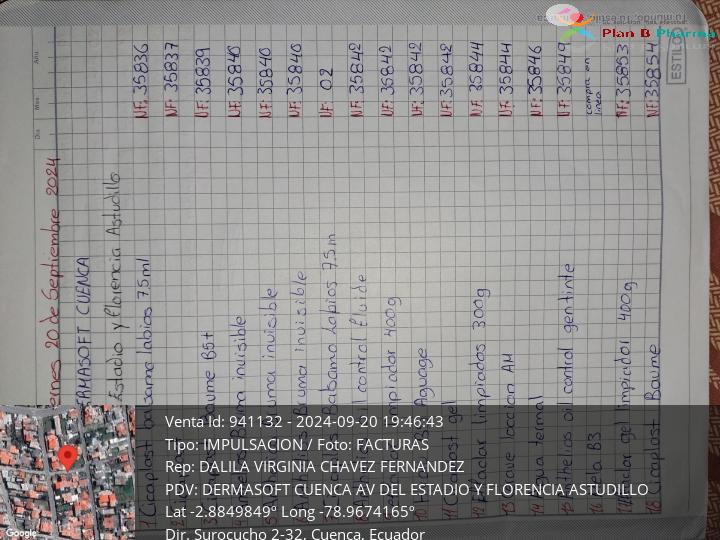 Plan B Pharma
ESTILO
Dia Mes Año
Viernes 20 de Septiembre 2024
DERMASOFT CUENCA
Estadio y Florencia Astudillo
1 Cicaplast balsamo labios 7.5ml NF: 35836
NF: 35837
3 Baume B5+ NF: 35839
4 Bruma invisible NF: 35840
Bruma invisible NF: 35840
6 Bruma invisible NF: 35840
Labios 7.5m NF: 02
oil control fluide NF: 35842
limpiador 400g NF: 35842
10 NF: 35842
11 Cicaplast gel NF: 35842
12 limpiador 300g NF: 35844
13 loccion AH NF: 35844
14 Agua termal NF: 35846
15 Anthelios oil control gentinte NF: 35849
16 B3 compra en linea
17 gel limpiador 400g NF: 35853
18 Cicaplast Baume NF: 35854
Google
Venta Id: 941132 - 2024-09-20 19:46:43
Tipo: IMPULSACION / Foto: FACTURAS
Rep: DALILA VIRGINIA CHAVEZ FERNANDEZ
PDV: DERMASOFT CUENCA AV DEL ESTADIO Y FLORENCIA ASTUDILLO
Lat -2.8849849º Long -78.9674165º
Dir. Surocucho 2-32, Cuenca, Ecuador